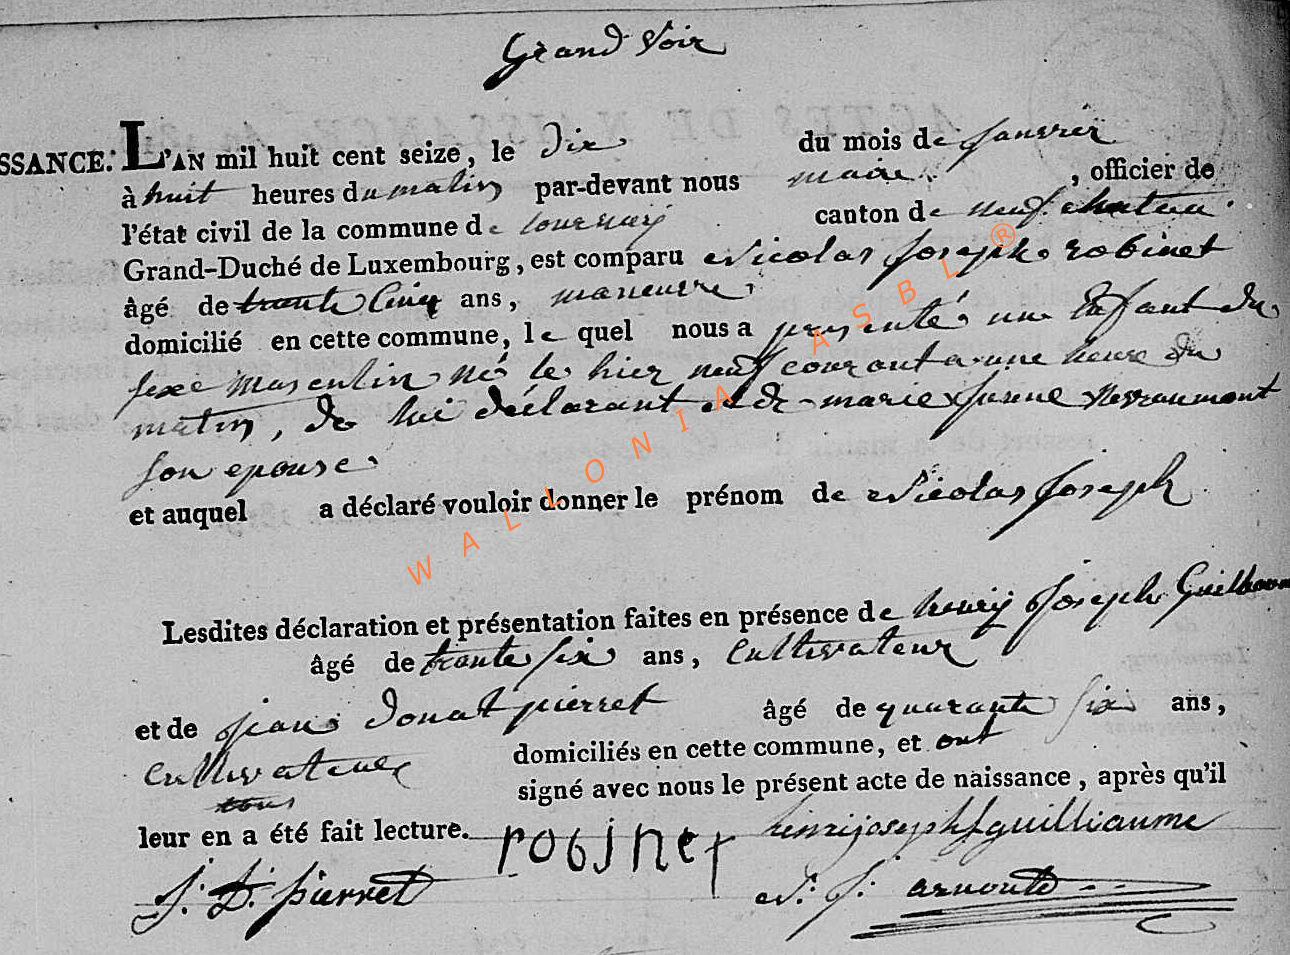 Grand Voir
SSANCE. L'AN mil huit cent seize, le dix du mois de janvier
à huit heures du matin par-devant nous maire, officier de
l'état civil de la commune de tournay canton de neufchateau
Grand-Duché de Luxembourg, est comparu Nicolas joseph robinet
âgé de trante cinq ans, maneuvre
domicilié en cette commune, le quel nous a presenté un Enfant du
sexe masculin né le hier neuf courant a une heure du
matin, de lui déclarant et de marie jeanne
son epouse
et auquel a déclaré vouloir donner le prénom de Nicolas joseph
Lesdites déclaration et présentation faites en présence de henry joseph
âgé de trante six ans, Cultivateur
et de jean donat pierret âgé de quarante six ans,
Cultivateur domiciliés en cette commune, et ont
tous signé avec nous le présent acte de naissance, après qu'il
leur en a été fait lecture. robinet henrijoseph guilliaume
J. D. pierret N. J. arnould
WALLONIA ASBL ®